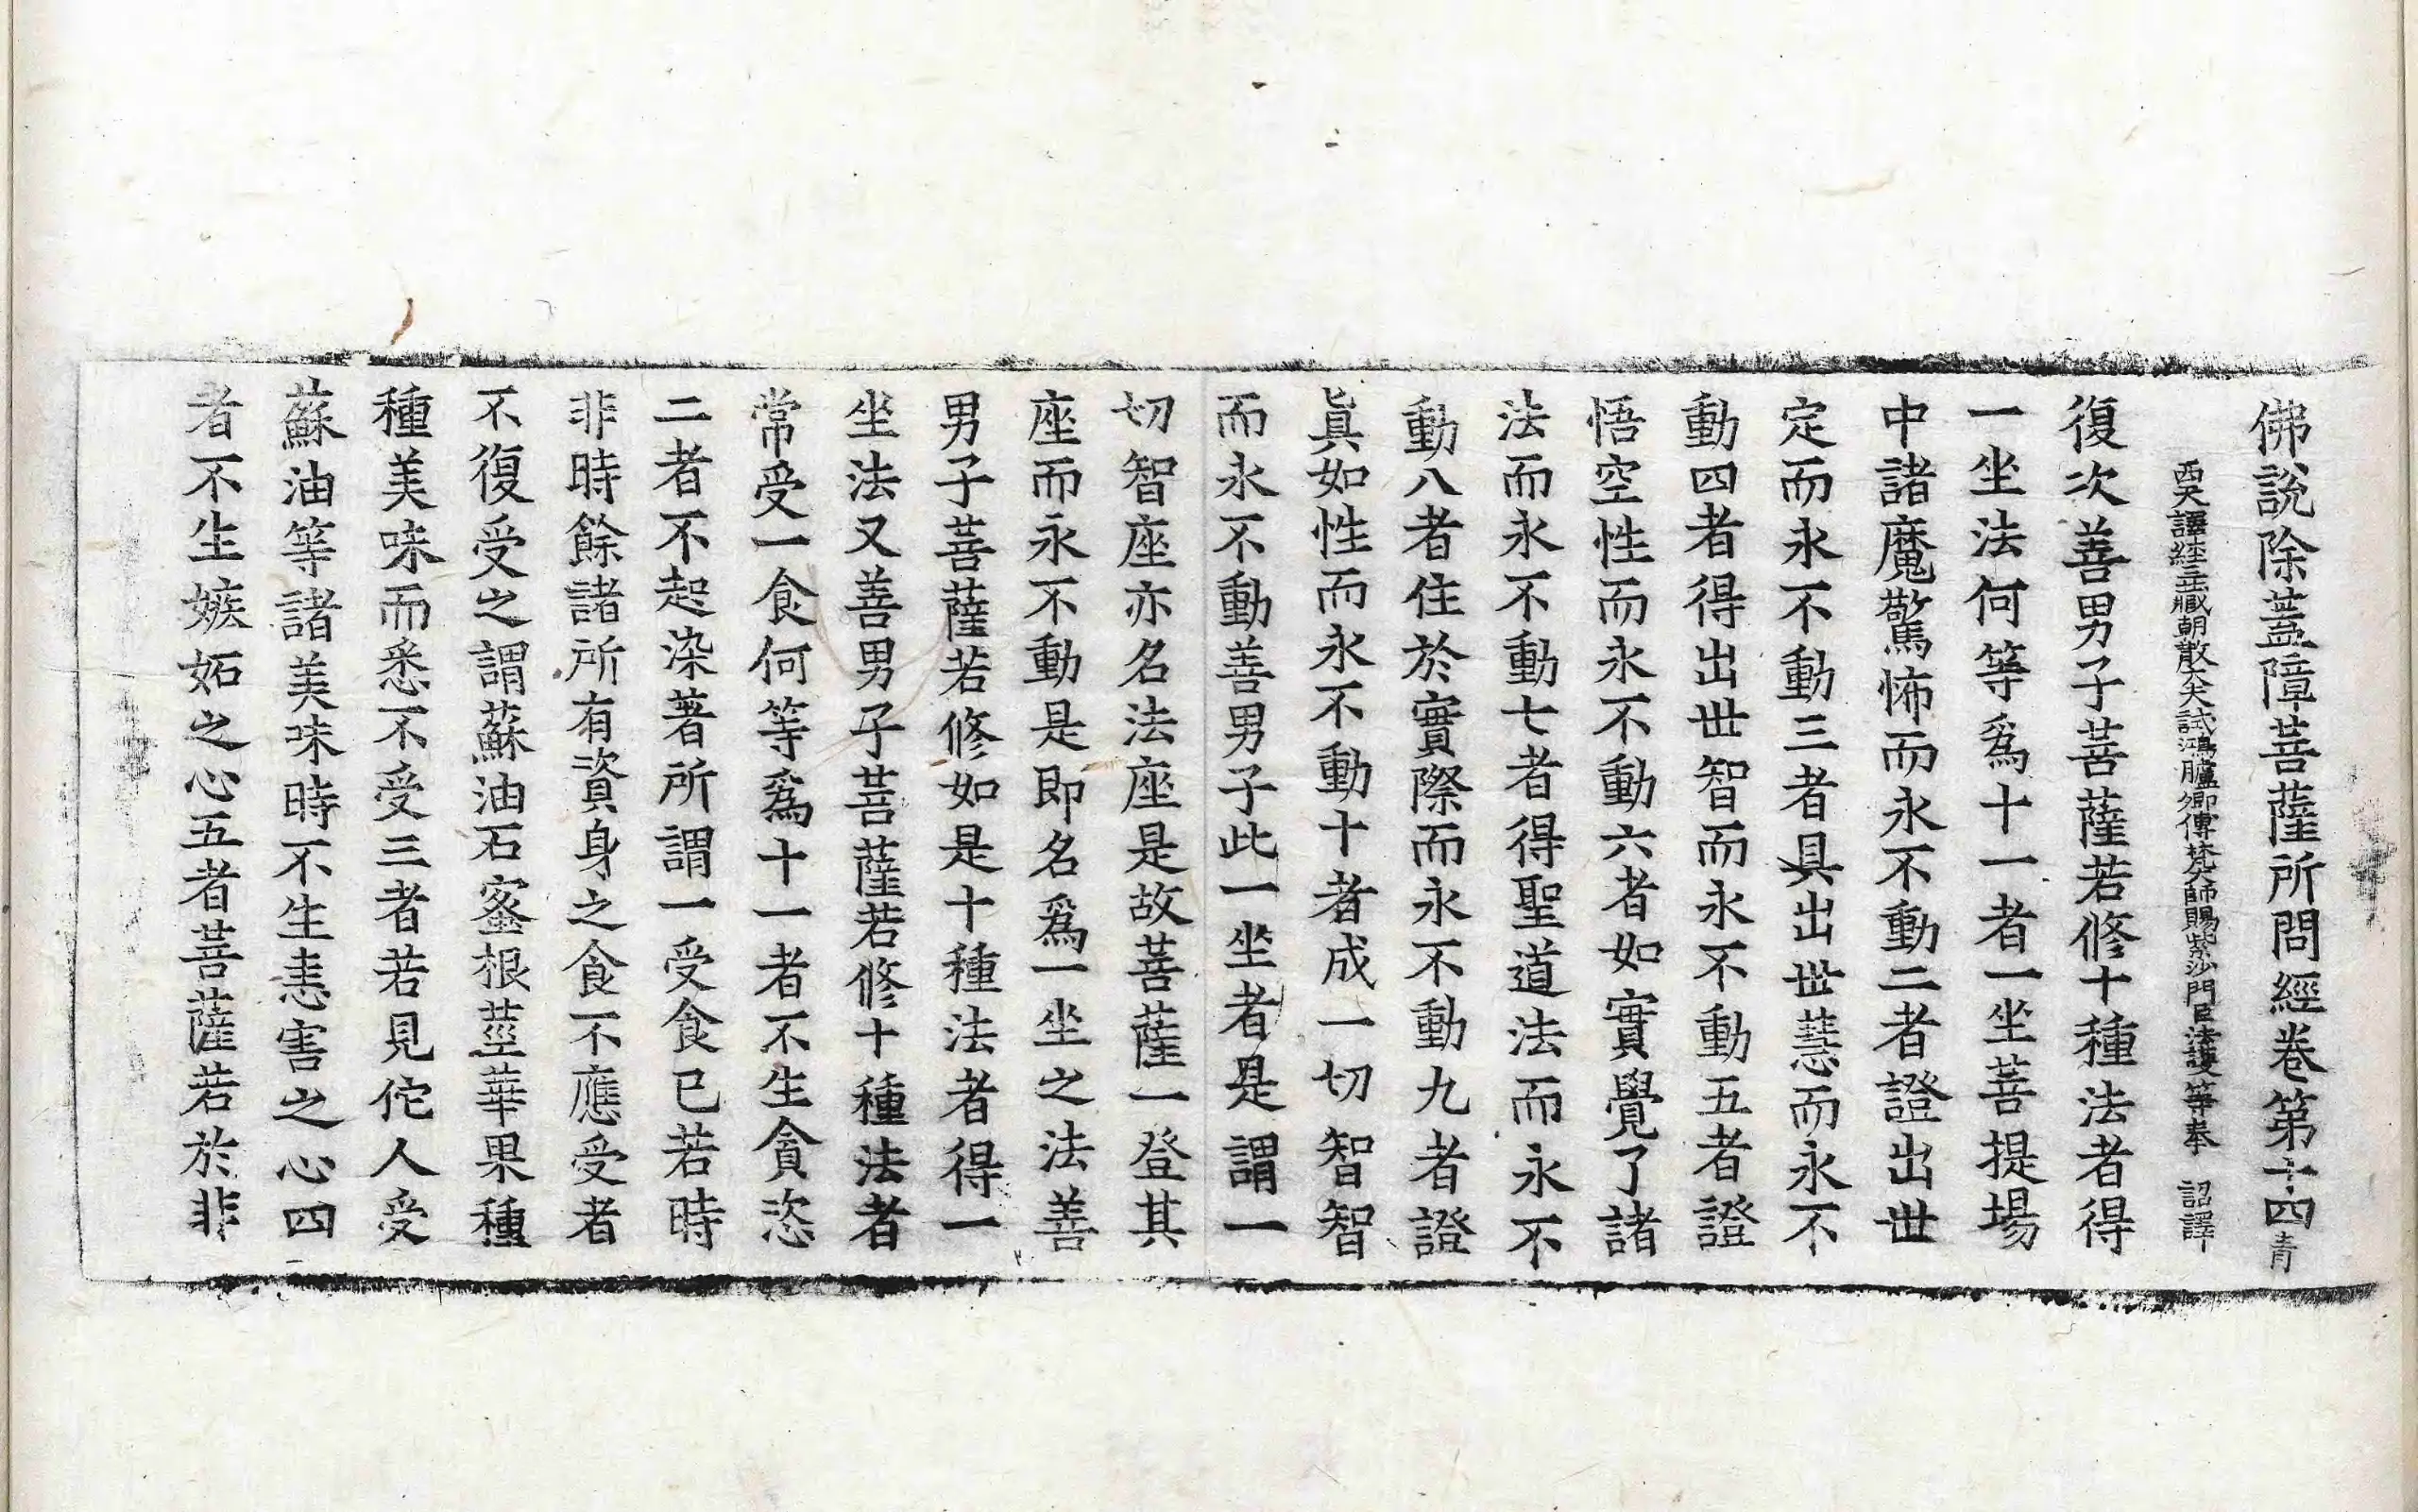 佛說除蓋障菩薩所問經卷第十四青
西天譯經三藏朝散大夫試鴻臚卿傳梵大師賜紫沙門臣法護等奉 詔譯
復次善男子菩薩若修十種法者得
一坐法何等爲十一者一坐菩提場
中諸魔驚怖而永不動二者證出世
定而永不動三者具出世慧而永不
動四者得出世智而永不動五者證
悟空性而永不動六者如實覺了諸
法而永不動七者得聖道法而永不
動八者住於實際而永不動九者證
眞如性而永不動十者成一切智智
而永不動善男子此一坐者是謂一
切智座亦名法座是故菩薩一登其
座而永不動是即名爲一坐之法善
男子菩薩若修如是十種法者得一
坐法又善男子菩薩若修十種法者
常受一食何等爲十一者不生貪恣
二者不起染著所謂一受食已若時
非時餘諸所有資身之食不應受者
不復受之謂蘇油石蜜根莖華果種
種美味而悉不受三者若見佗人受
蘇油等諸美味時不生恚害之心四
者不生嫉妬之心五者菩薩若於非